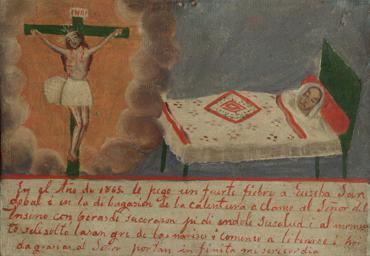 INRI
En el Año de 1865 le pego un fuerte fiebre á Euseba San
dobal i en la dibagasion de la calentura aclamo al Señor del
con beras de su corason pidiendole su salud i al momen
to se le solto la sangre de las narises i comenso a libiarse i hoy
da grasias al Señor por tan infinita misericordia